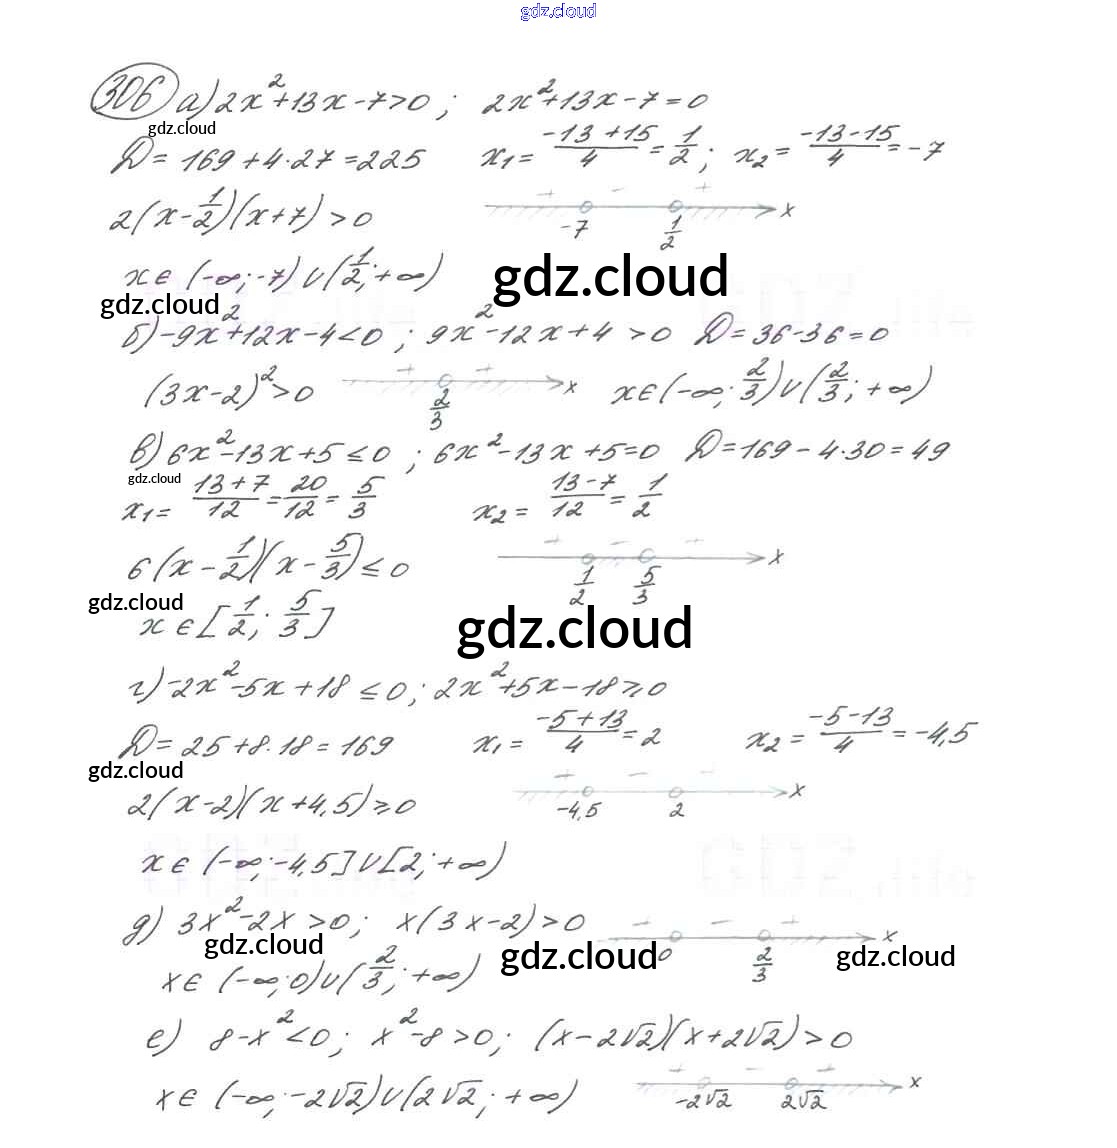 gdz.cloud
306 а) 2x²+13x-7>0 ; 2x²+13x-7=0
gdz.cloud
D= 169+4·27=225 x₁= (-13+15)/4 = 1/2 ; x₂= (-13-15)/4 = -7
2(x-1/2)(x+7)>0 + - + -7 1/2 x
x∈ (-∞;-7)∪(1/2;+∞)
gdz.cloud
gdz.cloud
б) -9x²+12x-4<0 ; 9x²-12x+4>0 D=36-36=0
(3x-2)²>0 + + 2/3 x x∈(-∞;2/3)∪(2/3;+∞)
в) 6x²-13x+5≤0 ; 6x²-13x+5=0 D=169-4·30=49
gdz.cloud
x₁= (13+7)/12 = 20/12 = 5/3 x₂= (13-7)/12 = 1/2
6(x-1/2)(x-5/3)≤0 + - + 1/2 5/3 x
gdz.cloud
x∈[1/2; 5/3]
gdz.cloud
г) -2x²-5x+18≤0; 2x²+5x-18≥0
D=25+8·18=169 x₁= (-5+13)/4 = 2 x₂= (-5-13)/4 = -4,5
gdz.cloud
2(x-2)(x+4,5)≥0 + - + -4,5 2 x
x∈ (-∞;-4,5]∪[2;+∞)
GDZ
д) 3x²-2x>0; x(3x-2)>0 + - + 0 2/3 x
gdz.cloud gdz.cloud gdz.cloud
x∈ (-∞;0)∪(2/3;+∞)
е) 8-x²<0; x²-8>0; (x-2√2)(x+2√2)>0
x∈ (-∞;-2√2)∪(2√2;+∞) + - + -2√2 2√2 x